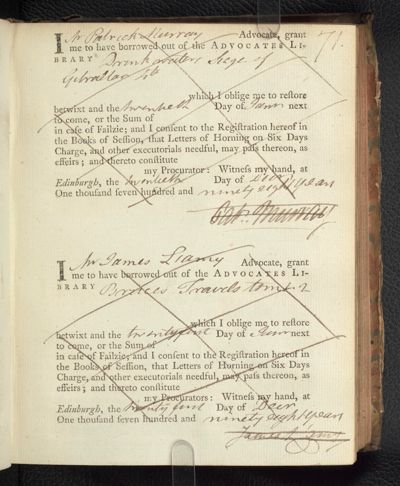 71.
I Mr Patrick Murray Advocate, grant
me to have borrowed out of the ADVOCATES LI-
BRARY Drinkwaters Siege of
Gibraltar 4to
which I oblige me to reſtore
betwixt and the twentieth Day of Janry next
to come, or the Sum of
in caſe of Failzie; and I conſent to the Regiſtration hereof in
the Books of Seſſion, that Letters of Horning on Six Days
Charge, and other executorials needful, may paſs thereon, as
effeirs; and thereto conſtitute
my Procurator: Witneſs my hand, at
Edinburgh, the twentieth Day of Decr
One thouſand ſeven hundred and ninety eight years
Patk. Murray
I Mr James Advocate, grant
me to have borrowed out of the ADVOCATES LI-
BRARY Bruces Travels tome 2
which I oblige me to reſtore
betwixt and the twenty first Day of next
to come, or the Sum of
in caſe of Failzie; and I conſent to the Regiſtration hereof in
the Books of Seſſion, that Letters of Horning on Six Days
Charge, and other executorials needful, may paſs thereon, as
effeirs; and thereto conſtitute
my Procurators: Witneſs my hand, at
Edinburgh, the twenty first Day of Decr
One thouſand ſeven hundred and ninety eight years
James